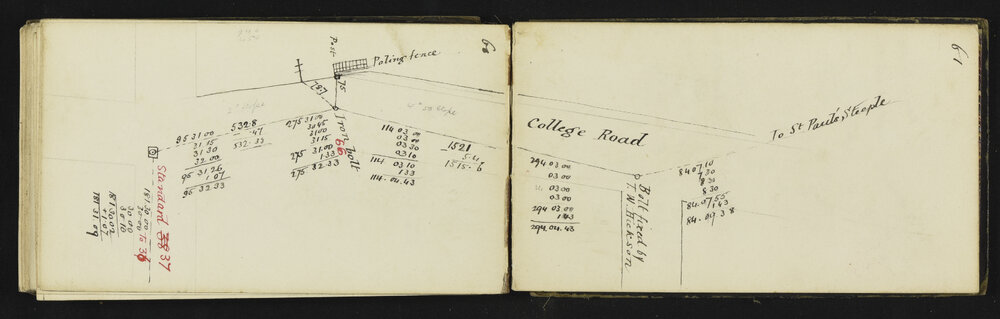 60
Post
Paling fence
75
787
Iron bolt
66
2° slope
4° 50 slope
95 31 00
31.15
31.30
32.00
95 31 26
1 07
95 32 33
532.8
.47
532.33
275 31 00
30 45
31 00
31 15
275 31.00
1 33
275 32.33
114 03 00
03 00
03 30
03 10
114 03 10
1 33
114.04.43
1521
5.4
1515.6
Standard 38 37
181 30 00 To 36
181 31.09
61
College Road
To St Paul's Steeple
294 03.00
03 00
03 00
03 00
294 03 00
1 43
294.04.43
Bolt fixed by
T. W. Hickson
84 07 10
7 30
8 30
8 30
84.07 55
1 43
84.09 38